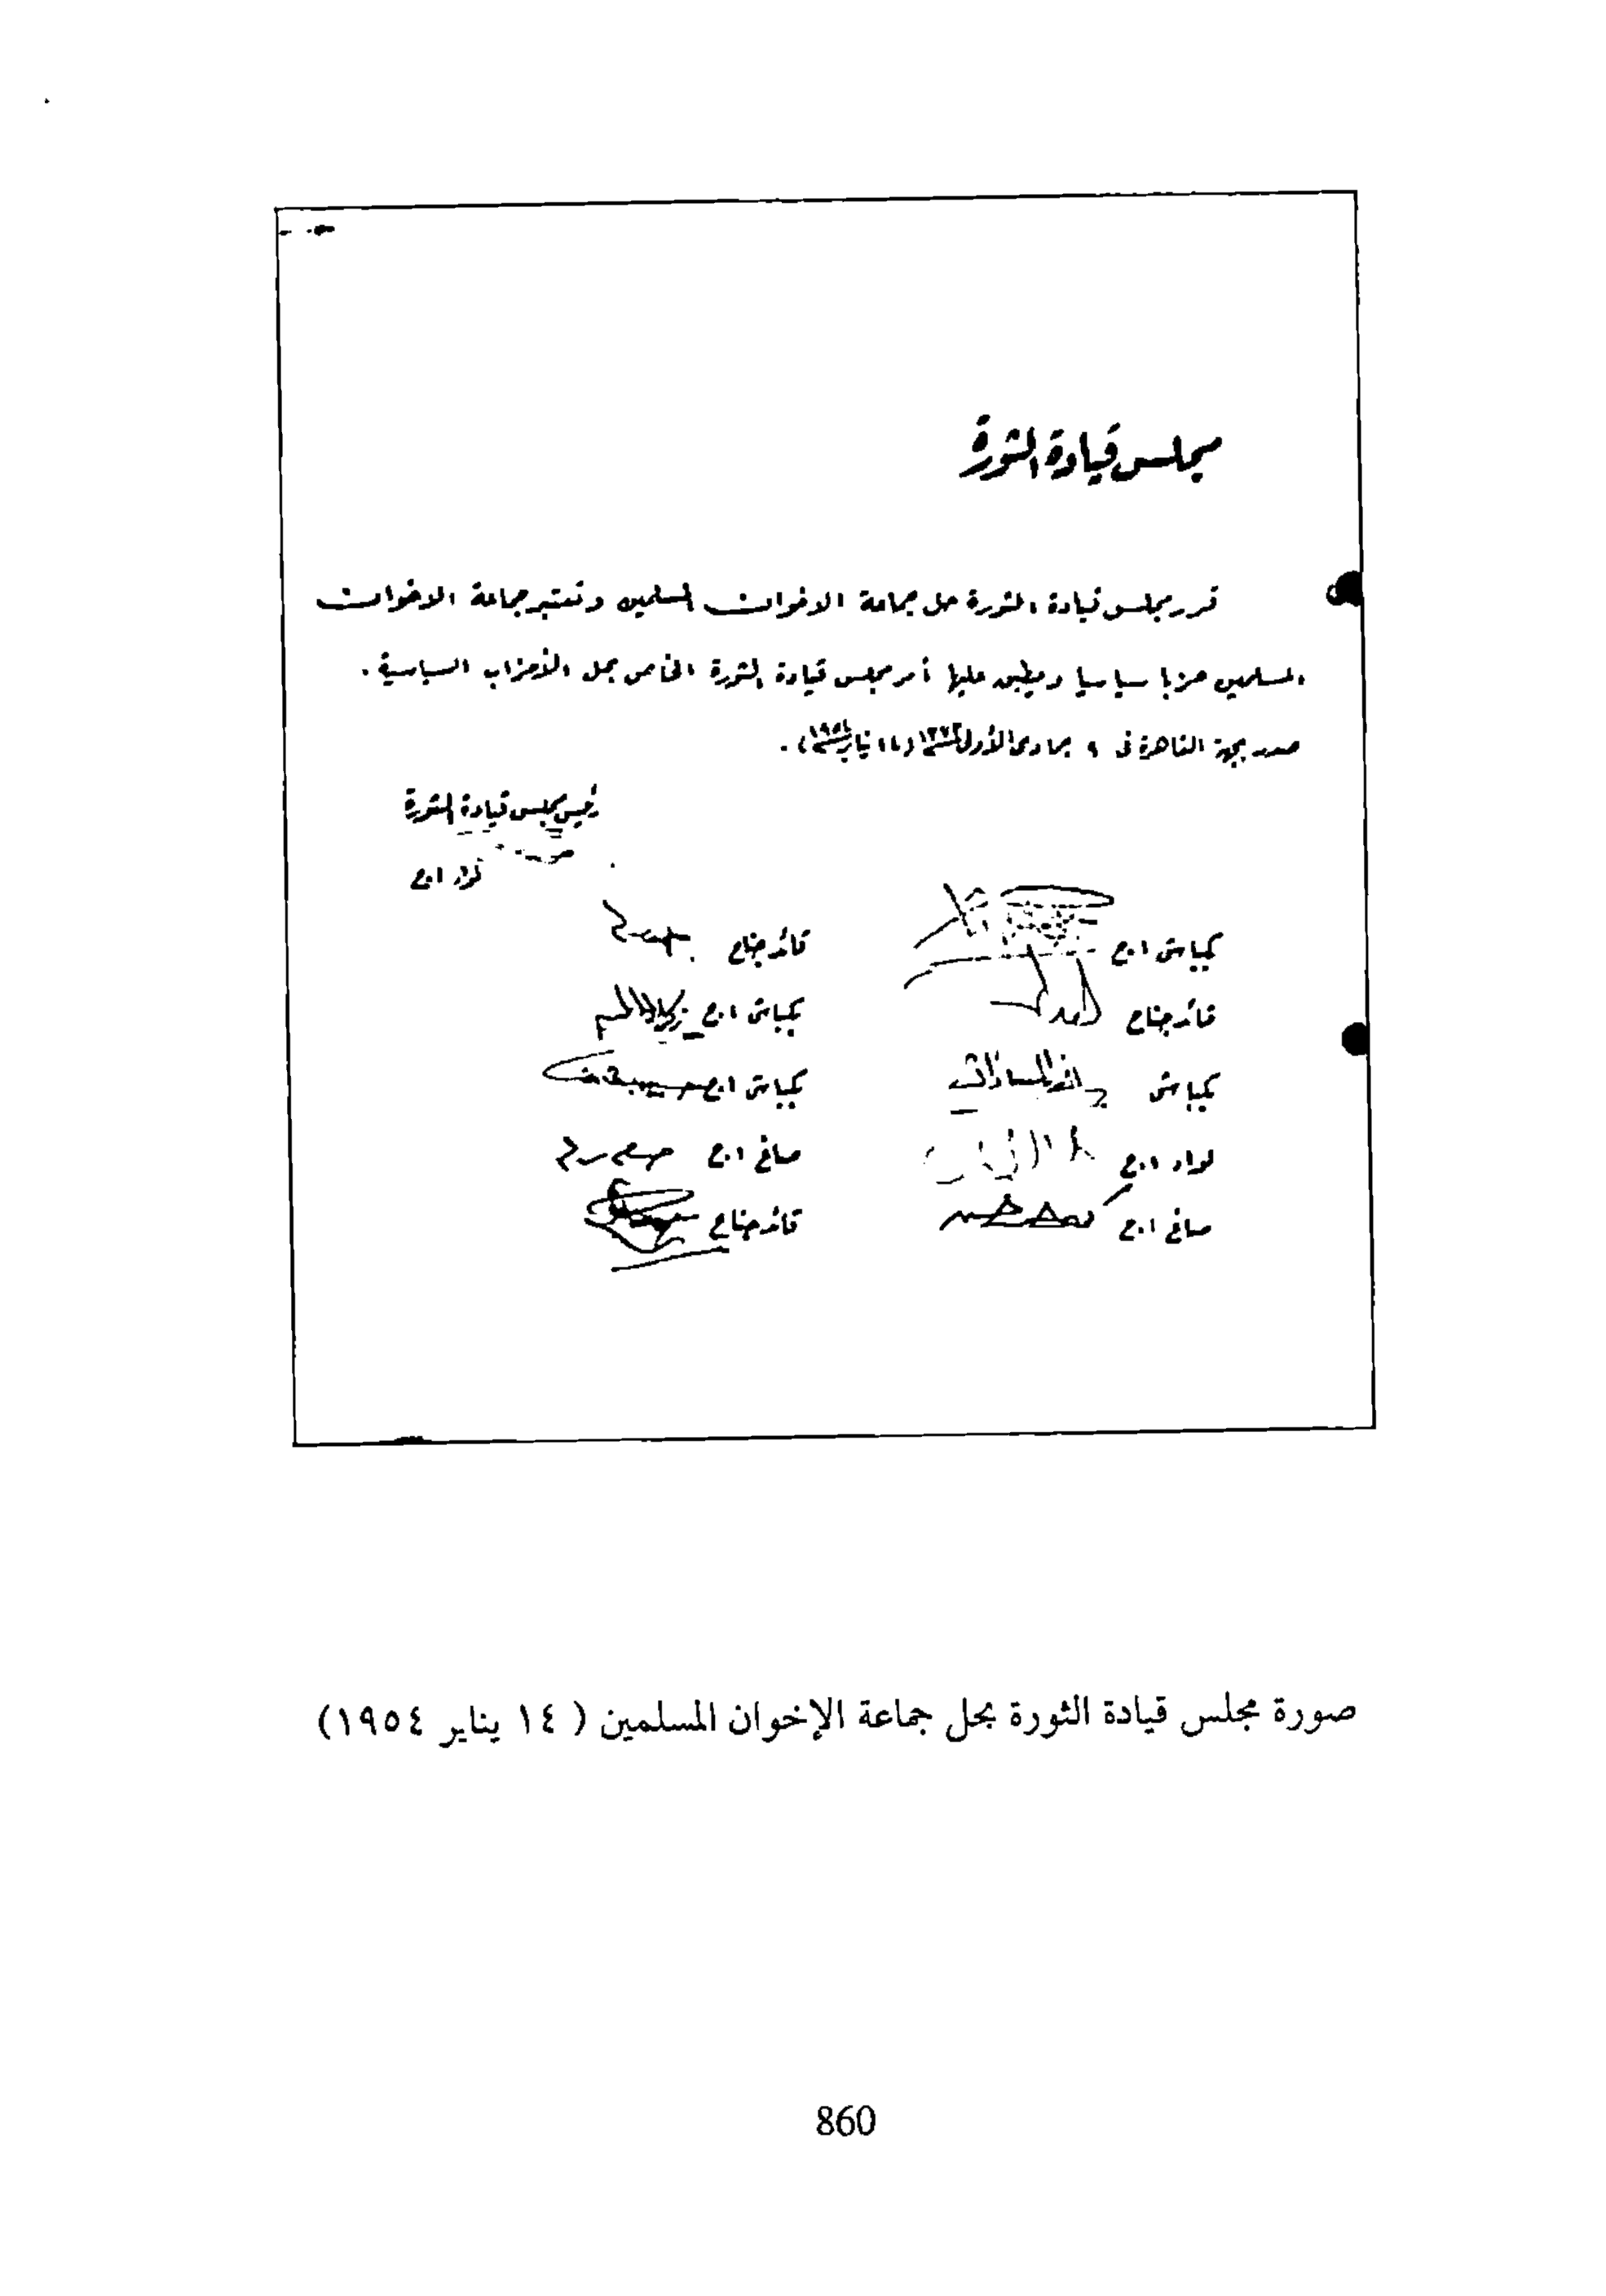 مجلس قيادة الثورة
قرر مجلس قيادة الثورة حل جماعة الاخوان المسلمين وتعتبر جماعة الاخوان
المسلمين حزبا سياسيا ويطبق عليها أمر مجلس قيادة الثورة الخاص بحل الأحزاب السياسية .
صدر بجهة القاهرة فى ٩ جمادى الأول سنة ١٣٧٣ (١٤ يناير سنة ١٩٥٤) .
رئيس مجلس قيادة الثورة
لواء ا.ح
بكباشى ا.ح
قائد جناح
قائد جناح
بكباشى ا.ح زكريا
بكباشى أنور السادات
بكباشى ا.ح حسين
لواء ا.ح
صاغ ا.ح
صاغ ا.ح
قائد جناح
صورة مجلس قيادة الثورة بحل جماعة الإخوان المسلمين ( ١٤ يناير ١٩٥٤)
860